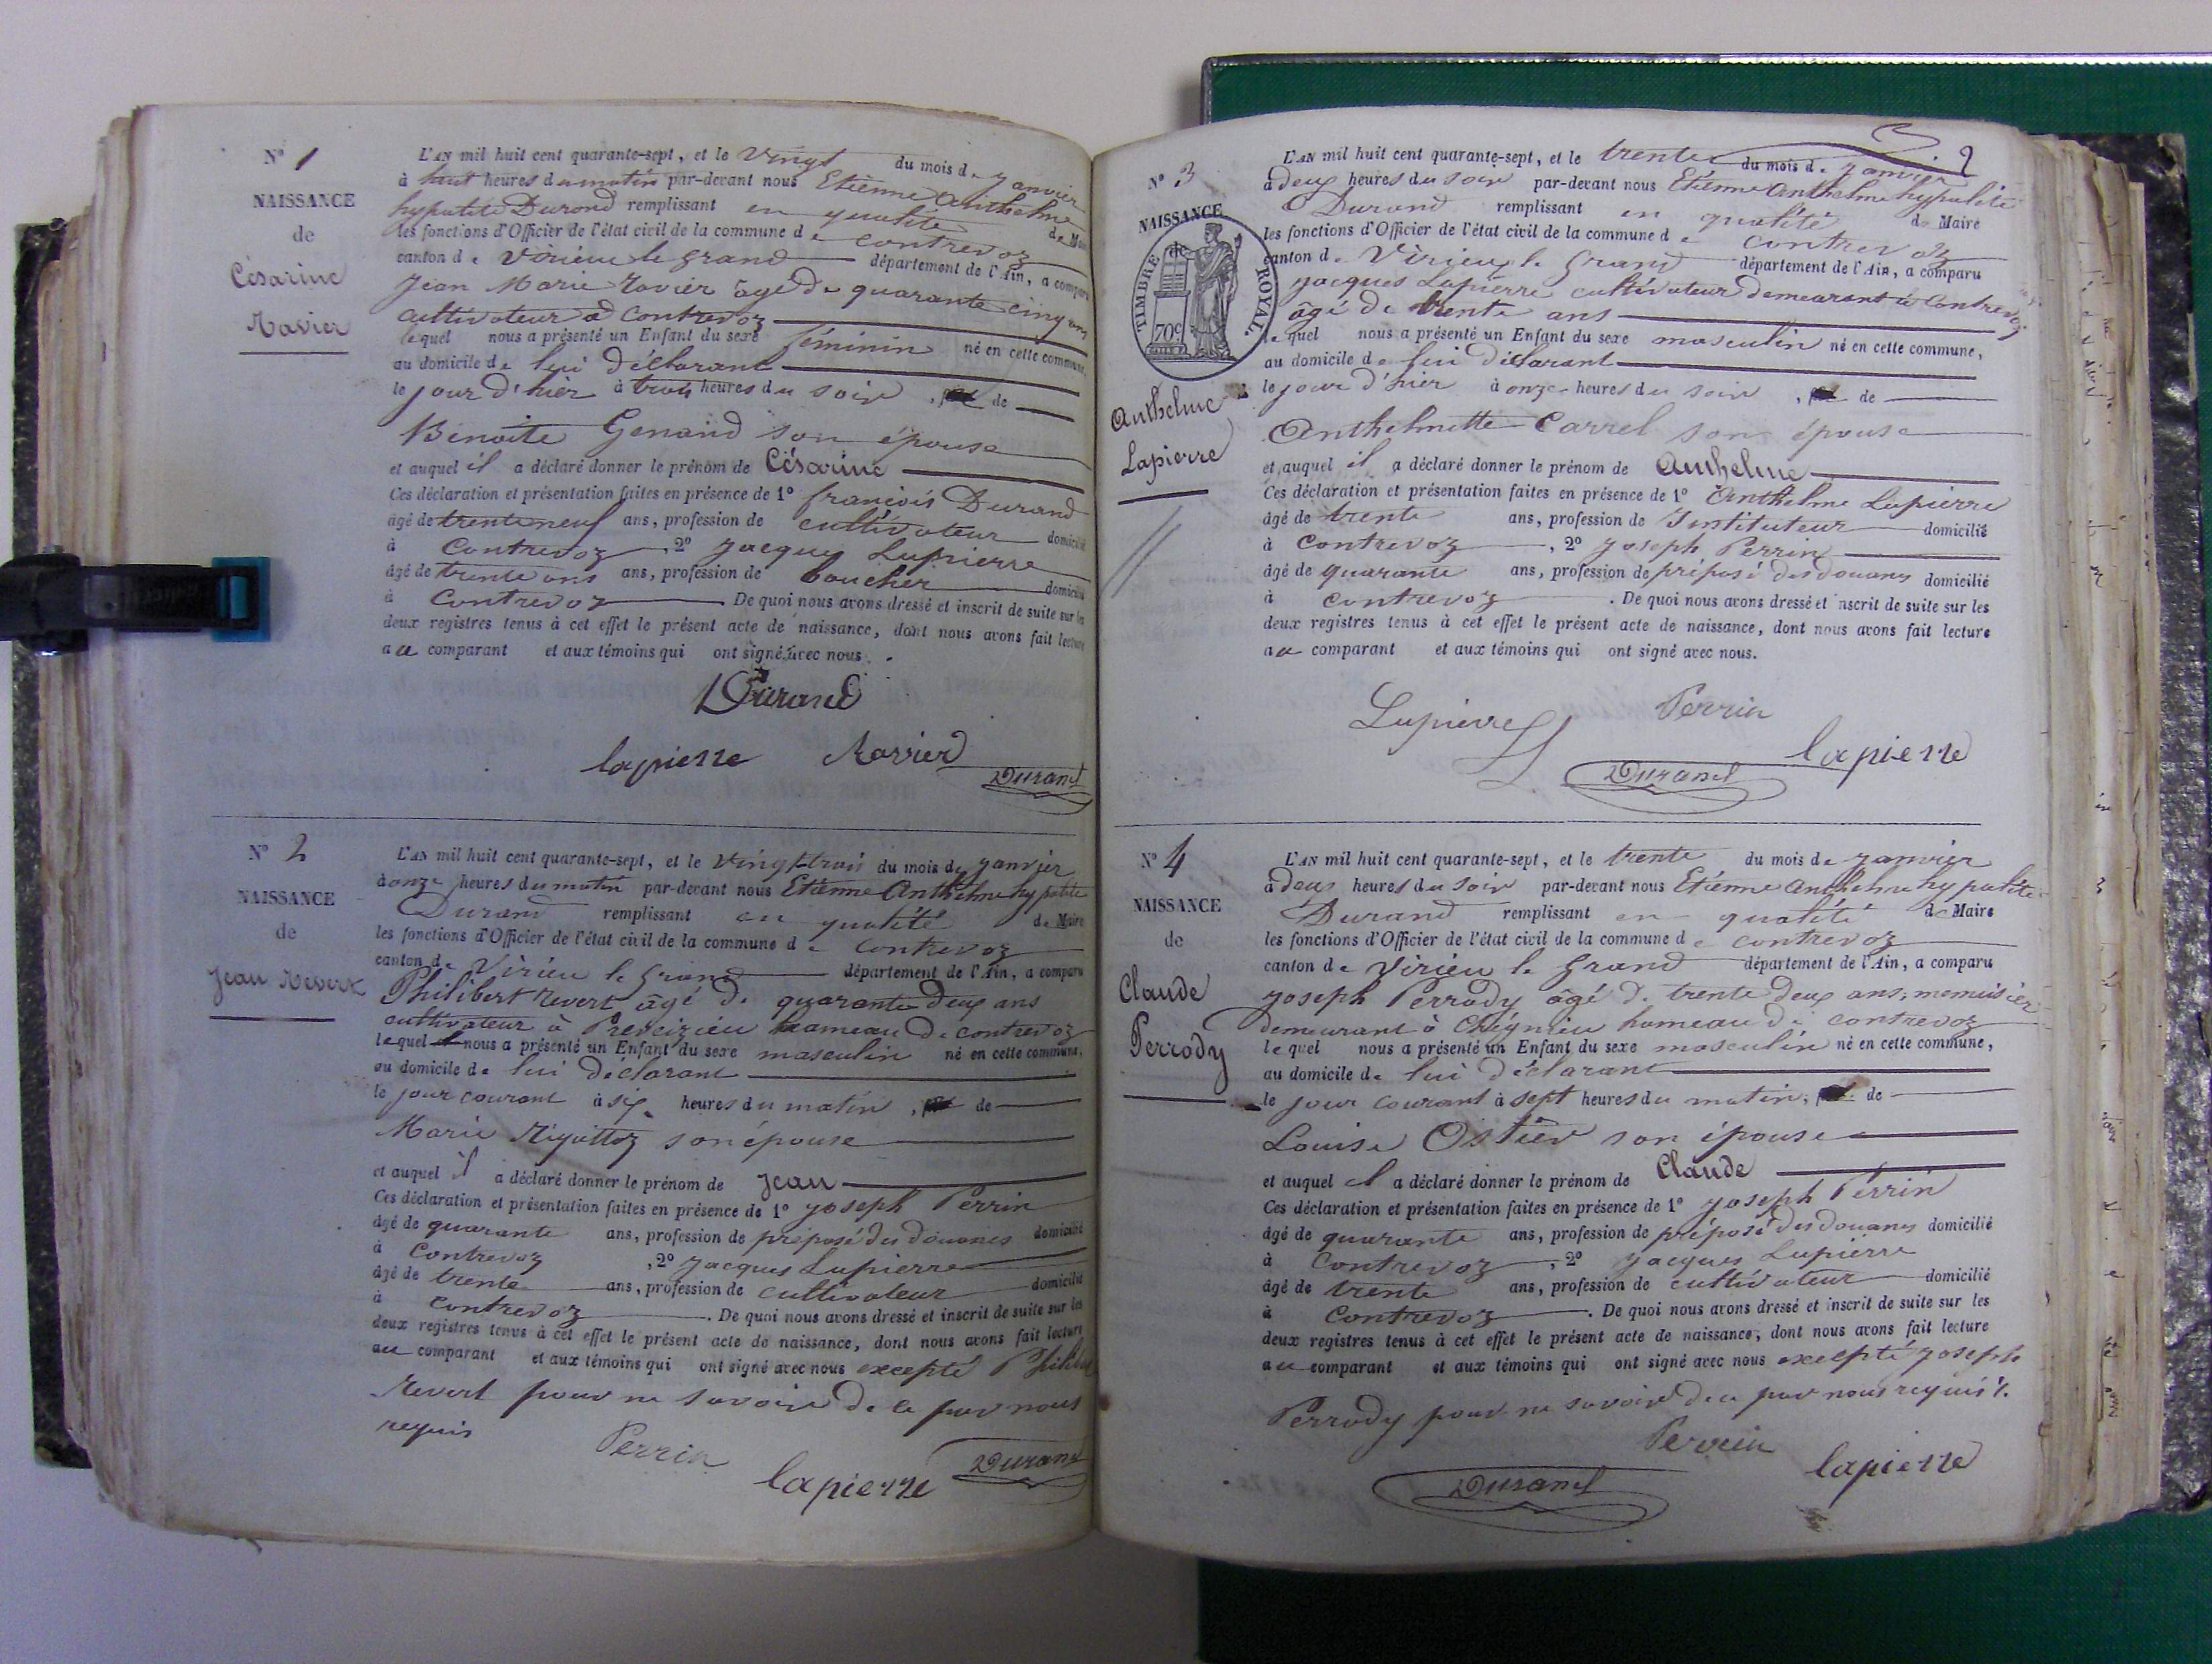 N° 1
NAISSANCE
de
Césarine
Ravier
L'AN mil huit cent quarante-sept, et le vingt du mois de janvier
à huit heures du matin par-devant nous Etienne Anthelme
hypolite Durand remplissant en qualité de Maire
les fonctions d'Officier de l'état civil de la commune de contrevoz
canton de Virieu le grand département de l'Ain, a comparu
Jean Marie Ravier âgé de quarante cinq ans
cultivateur à Contrevoz
lequel nous a présenté un Enfant du sexe féminin né en cette commune,
au domicile de lui déclarant
le jour d'hier à trois heures du soir, de
Benoite Genand son épouse
et auquel il a déclaré donner le prénom de Césarine
Ces déclaration et présentation faites en présence de 1° françois Durand
âgé de trente neuf ans, profession de cultivateur domicilié
à Contrevoz, 2° Jacques Lapierre
âgé de trente ans ans, profession de boucher domicilié
à Contrevoz. De quoi nous avons dressé et inscrit de suite sur les
deux registres tenus à cet effet le présent acte de naissance, dont nous avons fait lecture
au comparant et aux témoins qui ont signé avec nous.
Durand
lapierre Ravier
Durand
N° 2
NAISSANCE
de
Jean Revert
L'AN mil huit cent quarante-sept, et le vingt trois du mois de janvier
à onze heures du matin par-devant nous Etienne Anthelme hypolite
Durand remplissant en qualité de Maire
les fonctions d'Officier de l'état civil de la commune de Contrevoz
canton de Virieu le grand département de l'Ain, a comparu
Philibert Revert âgé de quarante deux ans
cultivateur à Preveizieu hameau de contrevoz
lequel nous a présenté un Enfant du sexe masculin né en cette commune,
au domicile de lui declarant
le jour courant à six heures du matin, de
Marie Rigottoz son épouse
et auquel il a déclaré donner le prénom de Jean
Ces déclaration et présentation faites en présence de 1° Joseph Perrin
âgé de quarante ans, profession de préposé des douanes domicilié
à Contrevoz, 2° Jacques Lapierre
âgé de trente ans, profession de cultivateur domicilié
à contrevoz. De quoi nous avons dressé et inscrit de suite sur les
deux registres tenus à cet effet le présent acte de naissance, dont nous avons fait lecture
au comparant et aux témoins qui ont signé avec nous excepté Philibert
Revert pour ne savoir de ce par nous
requis
Perrin
lapierre Durand
2
N° 3
NAISSANCE
TIMBRE ROYAL.
70c
Anthelme
Lapierre
L'AN mil huit cent quarante-sept, et le trente du mois de janvier
à deux heures du soir par-devant nous Etienne Anthelme hypolite
Durand remplissant en qualité de Maire
les fonctions d'Officier de l'état civil de la commune de contrevoz
canton de Virieu le Grand département de l'Ain, a comparu
Jacques Lapierre cultivateur demeurant à Contrevoz
âgé de trente ans
lequel nous a présenté un Enfant du sexe masculin né en cette commune,
au domicile de lui déclarant
le jour d'hier à onze heures du soir, de
Anthelmette Carrel son épouse
et auquel il a déclaré donner le prénom de Anthelme
Ces déclaration et présentation faites en présence de 1° Anthelme Lapierre
âgé de trente ans, profession de Instituteur domicilié
à Contrevoz, 2° Joseph Perrin
âgé de quarante ans, profession de préposé des douanes domicilié
à contrevoz. De quoi nous avons dressé et inscrit de suite sur les
deux registres tenus à cet effet le présent acte de naissance, dont nous avons fait lecture
au comparant et aux témoins qui ont signé avec nous.
Lapierre Perrin
lapierre
Durand
N° 4
NAISSANCE
de
Claude
Perrody
L'AN mil huit cent quarante-sept, et le trente du mois de janvier
à deux heures du soir par-devant nous Etienne Anthelme hypolite
Durand remplissant en qualité de Maire
les fonctions d'Officier de l'état civil de la commune de contrevoz
canton de Virieu le Grand département de l'Ain, a comparu
Joseph Perrody âgé de trente deux ans, menuisier
demeurant à Chégnieu hameau de contrevoz
lequel nous a présenté un Enfant du sexe masculin né en cette commune,
au domicile de lui déclarant
le jour courant à sept heures du matin, de
Louise Ostier son épouse
et auquel il a déclaré donner le prénom de Claude
Ces déclaration et présentation faites en présence de 1° Joseph Perrin
âgé de quarante ans, profession de préposé des douanes domicilié
à Contrevoz, 2° Jacques Lapierre
âgé de trente ans, profession de cultivateur domicilié
à Contrevoz. De quoi nous avons dressé et inscrit de suite sur les
deux registres tenus à cet effet le présent acte de naissance, dont nous avons fait lecture
au comparant et aux témoins qui ont signé avec nous excepté Joseph
Perrody pour ne savoir de ce par nous requis
Perrin
lapierre
Durand